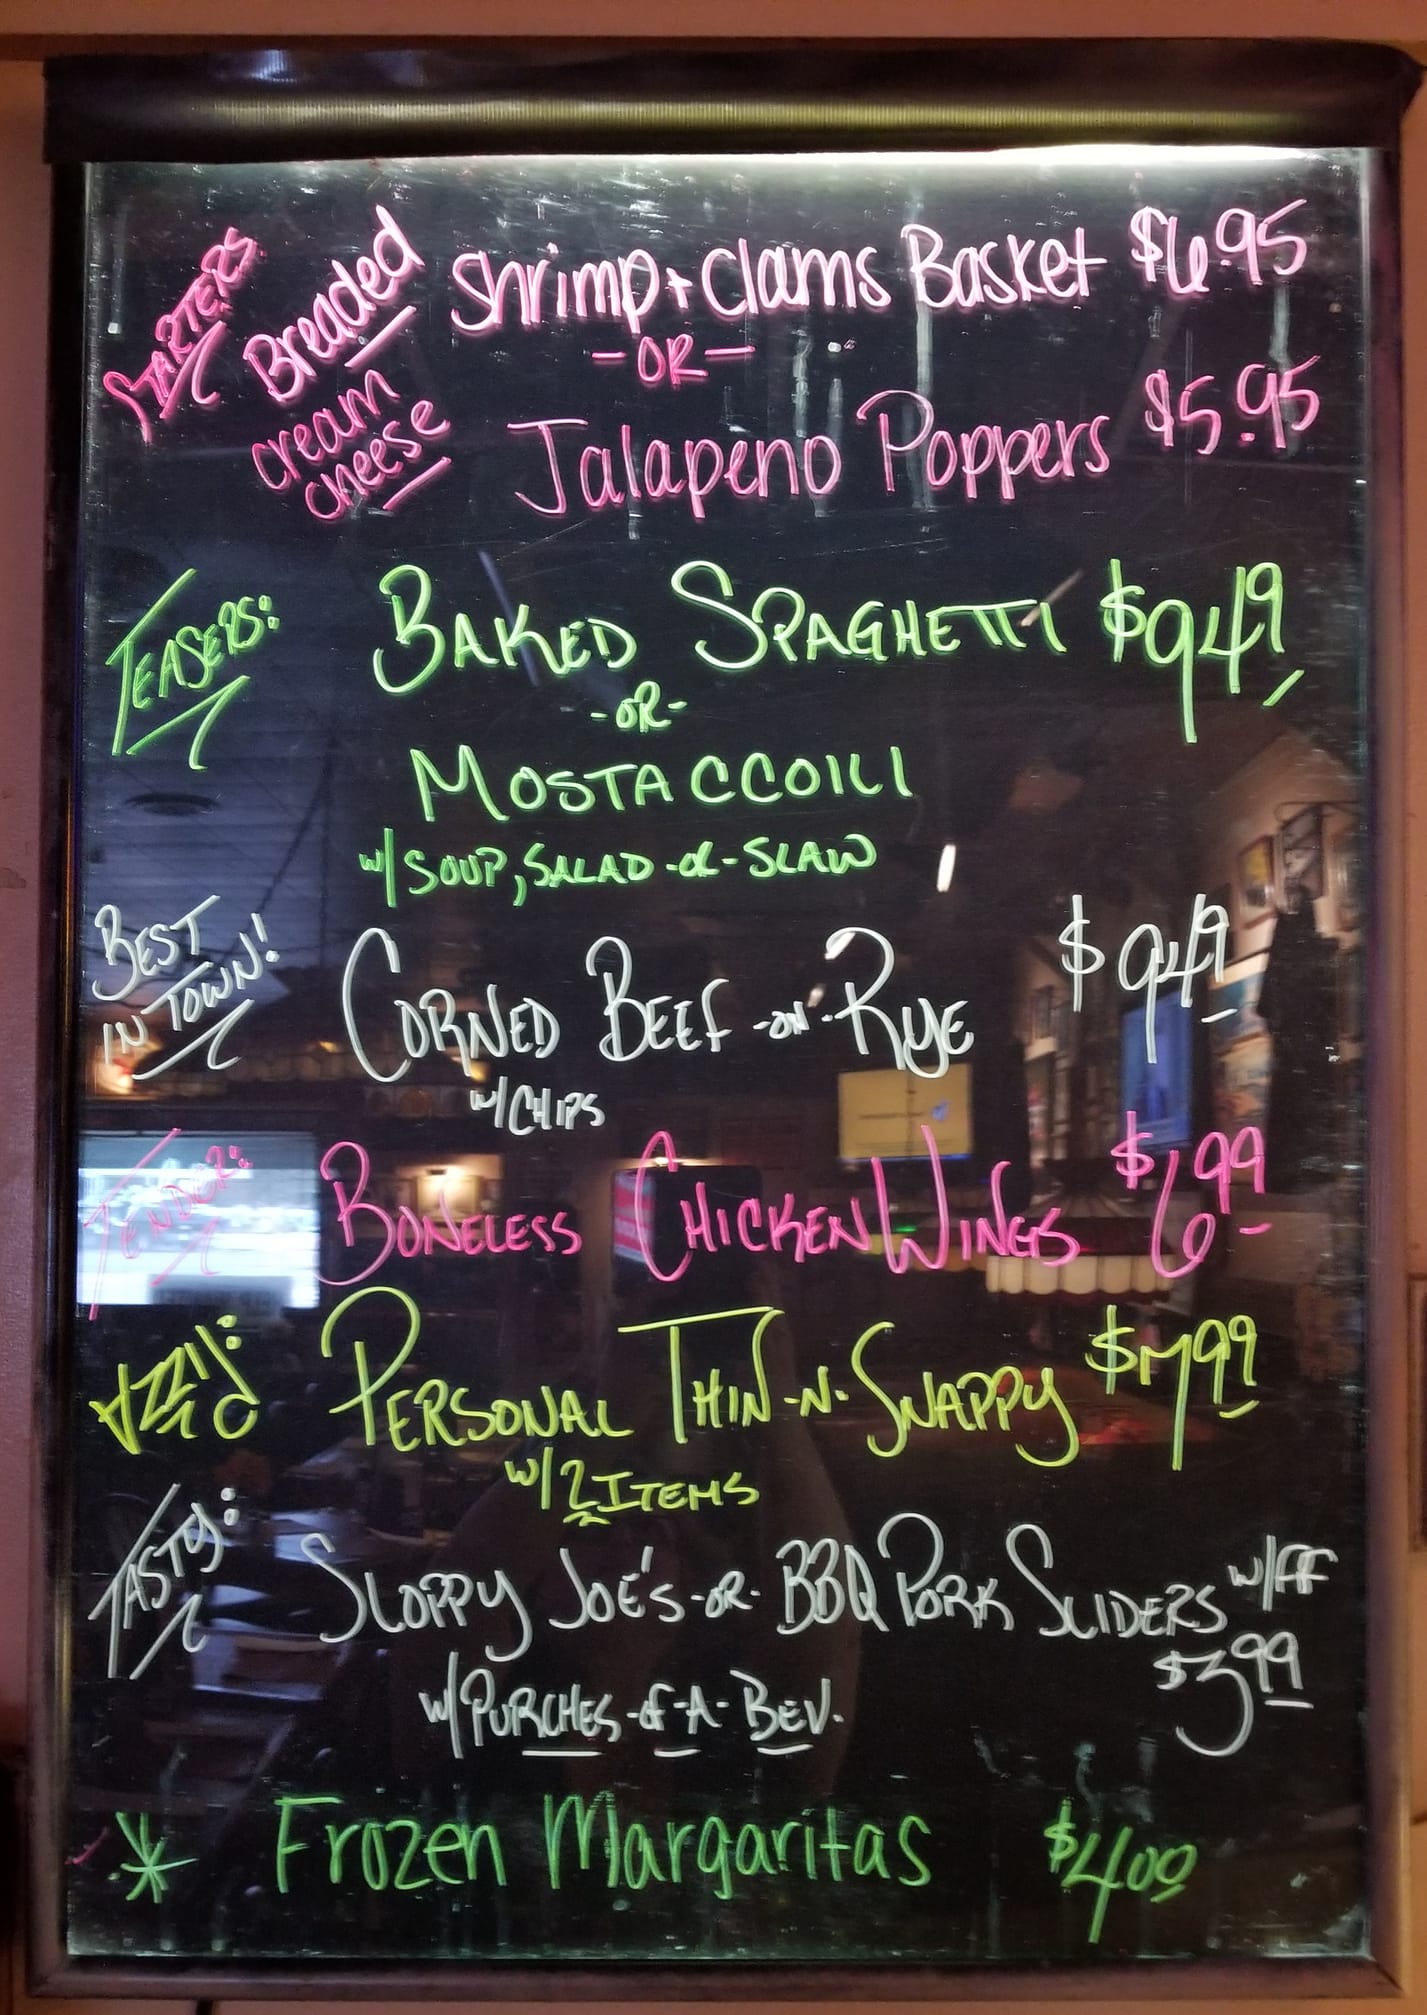 STARTERS Breaded Shrimp + Clams Basket $6.95
-OR-
cream cheese Jalapeno Poppers $5.95
TEASERS: BAKED SPAGHETTI $9.49
-OR-
MOSTACCOILI
W/ SOUP, SALAD -OR- SLAW
BEST IN TOWN! CORNED BEEF -ON- RYE $9.49
W/ CHIPS
TENDER: BONELESS CHICKEN WINGS $6.99
PIZZA: PERSONAL THIN-N-SNAPPY $7.99
W/ 2 ITEMS
TASTY: SLOPPY JOE'S -OR- BBQ PORK SLIDERS W/FF
$3.99
W/ PURCHES-OF-A-BEV.
* Frozen Margaritas $4.00